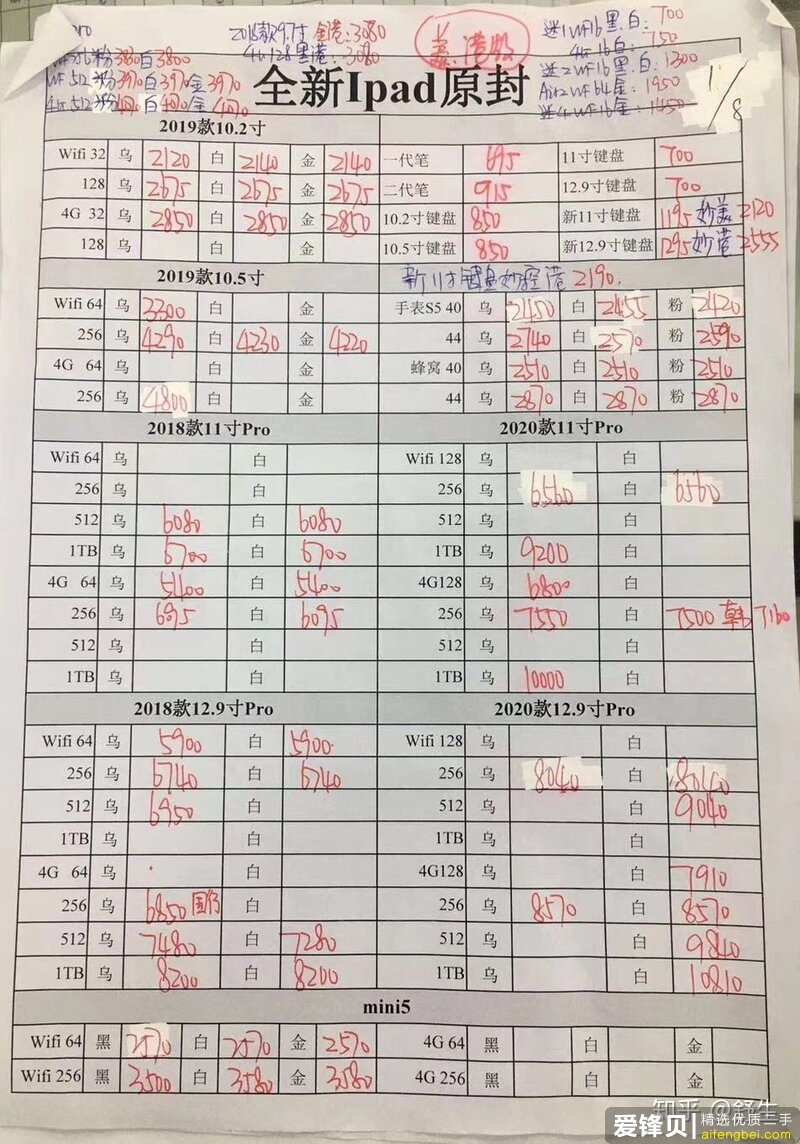 2018款9.7寸 金港:3080
4G 128 黑港:3080
美.港版
迷1 WF16黑.白:700
4G 16白:750
WF 512 粉3970白3970金3970
迷2 WF16黑.白:1300
Air2 WF 64金:1950
迷4 WF16金:1450
全新Ipad原封
11/8
2019款10.2寸
Wifi 32 乌 2120 白 2140 金 2140 一代笔 695 11寸键盘 700
128 乌 2675 白 2675 金 2675 二代笔 915 12.9寸键盘 700
4G 32 乌 2850 白 2850 金 2850 10.2寸键盘 850 新11寸键盘 1195 妙美 2120
128 乌 白 金 10.5寸键盘 850 新12.9寸键盘 1295 妙港 2555
2019款10.5寸 新11寸键盘妙控港 2190.
Wifi 64 乌 3300 白 金 手表S5 40 乌 2450 白 2455 粉 2420
256 乌 4290 白 4230 金 4220 44 乌 2740 白 2570 粉 2590
4G 64 乌 白 金 蜂窝 40 乌 2510 白 2510 粉 2510
256 乌 4800 白 金 44 乌 2870 白 2870 粉 2870
2018款11寸Pro 2020款11寸Pro
Wifi 64 乌 白 Wifi 128 乌 白
256 乌 白 256 乌 6560 白 6560
512 乌 6080 白 6080 512 乌 白
1TB 乌 6700 白 6700 1TB 乌 9200 白
4G 64 乌 5400 白 5400 4G128 乌 6800 白
256 乌 6095 白 6095 256 乌 7550 白 7500 韩 7160
512 乌 白 512 乌 白
1TB 乌 白 1TB 乌 10000 白
2018款12.9寸Pro 2020款12.9寸Pro
Wifi 64 乌 5900 白 5900 Wifi 128 乌 白
256 乌 6740 白 6740 256 乌 8040 白 8040
512 乌 6950 白 512 乌 白 9040
1TB 乌 白 1TB 乌 白
4G 64 乌 白 4G128 乌 白 7910
256 乌 6850 白 256 乌 8570 白 8570
512 乌 7480 白 7280 512 乌 白 9840
1TB 乌 8200 白 8200 1TB 乌 白 10810
mini5
Wifi 64 黑 2570 白 2570 金 2570 4G 64 黑 白 金
Wifi 256 黑 3500 白 3580 金 3580 4G 256 黑 白 金
知乎 @舒生
爱锋贝 精选优质二手
aifengbei.com